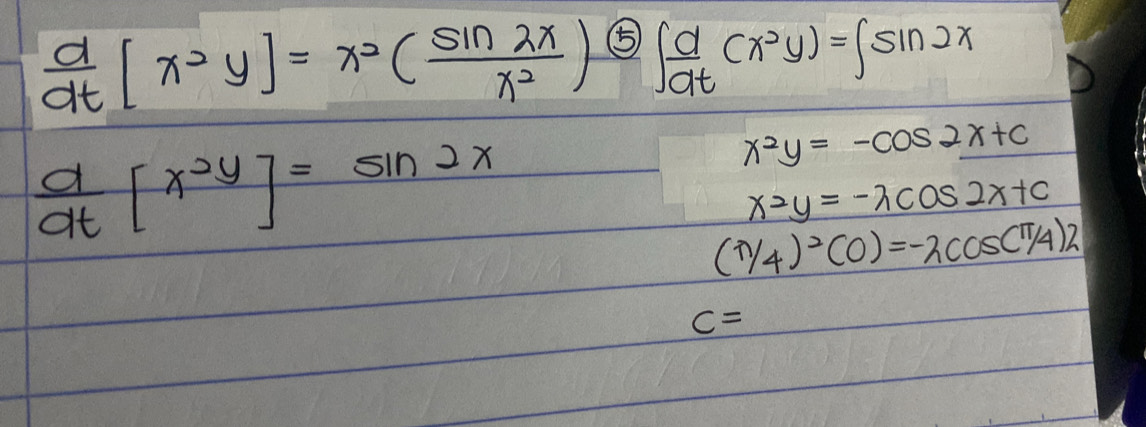 d/dt [x²y] = x²(sin 2x / x²) ⑤ ∫ d/dt (x²y) = ∫ sin 2x
d/dt [x²y] = sin 2x
x²y = -cos 2x + c
x²y = -2cos 2x + c
(π/4)²(0) = -2cos(π/4)2
c =